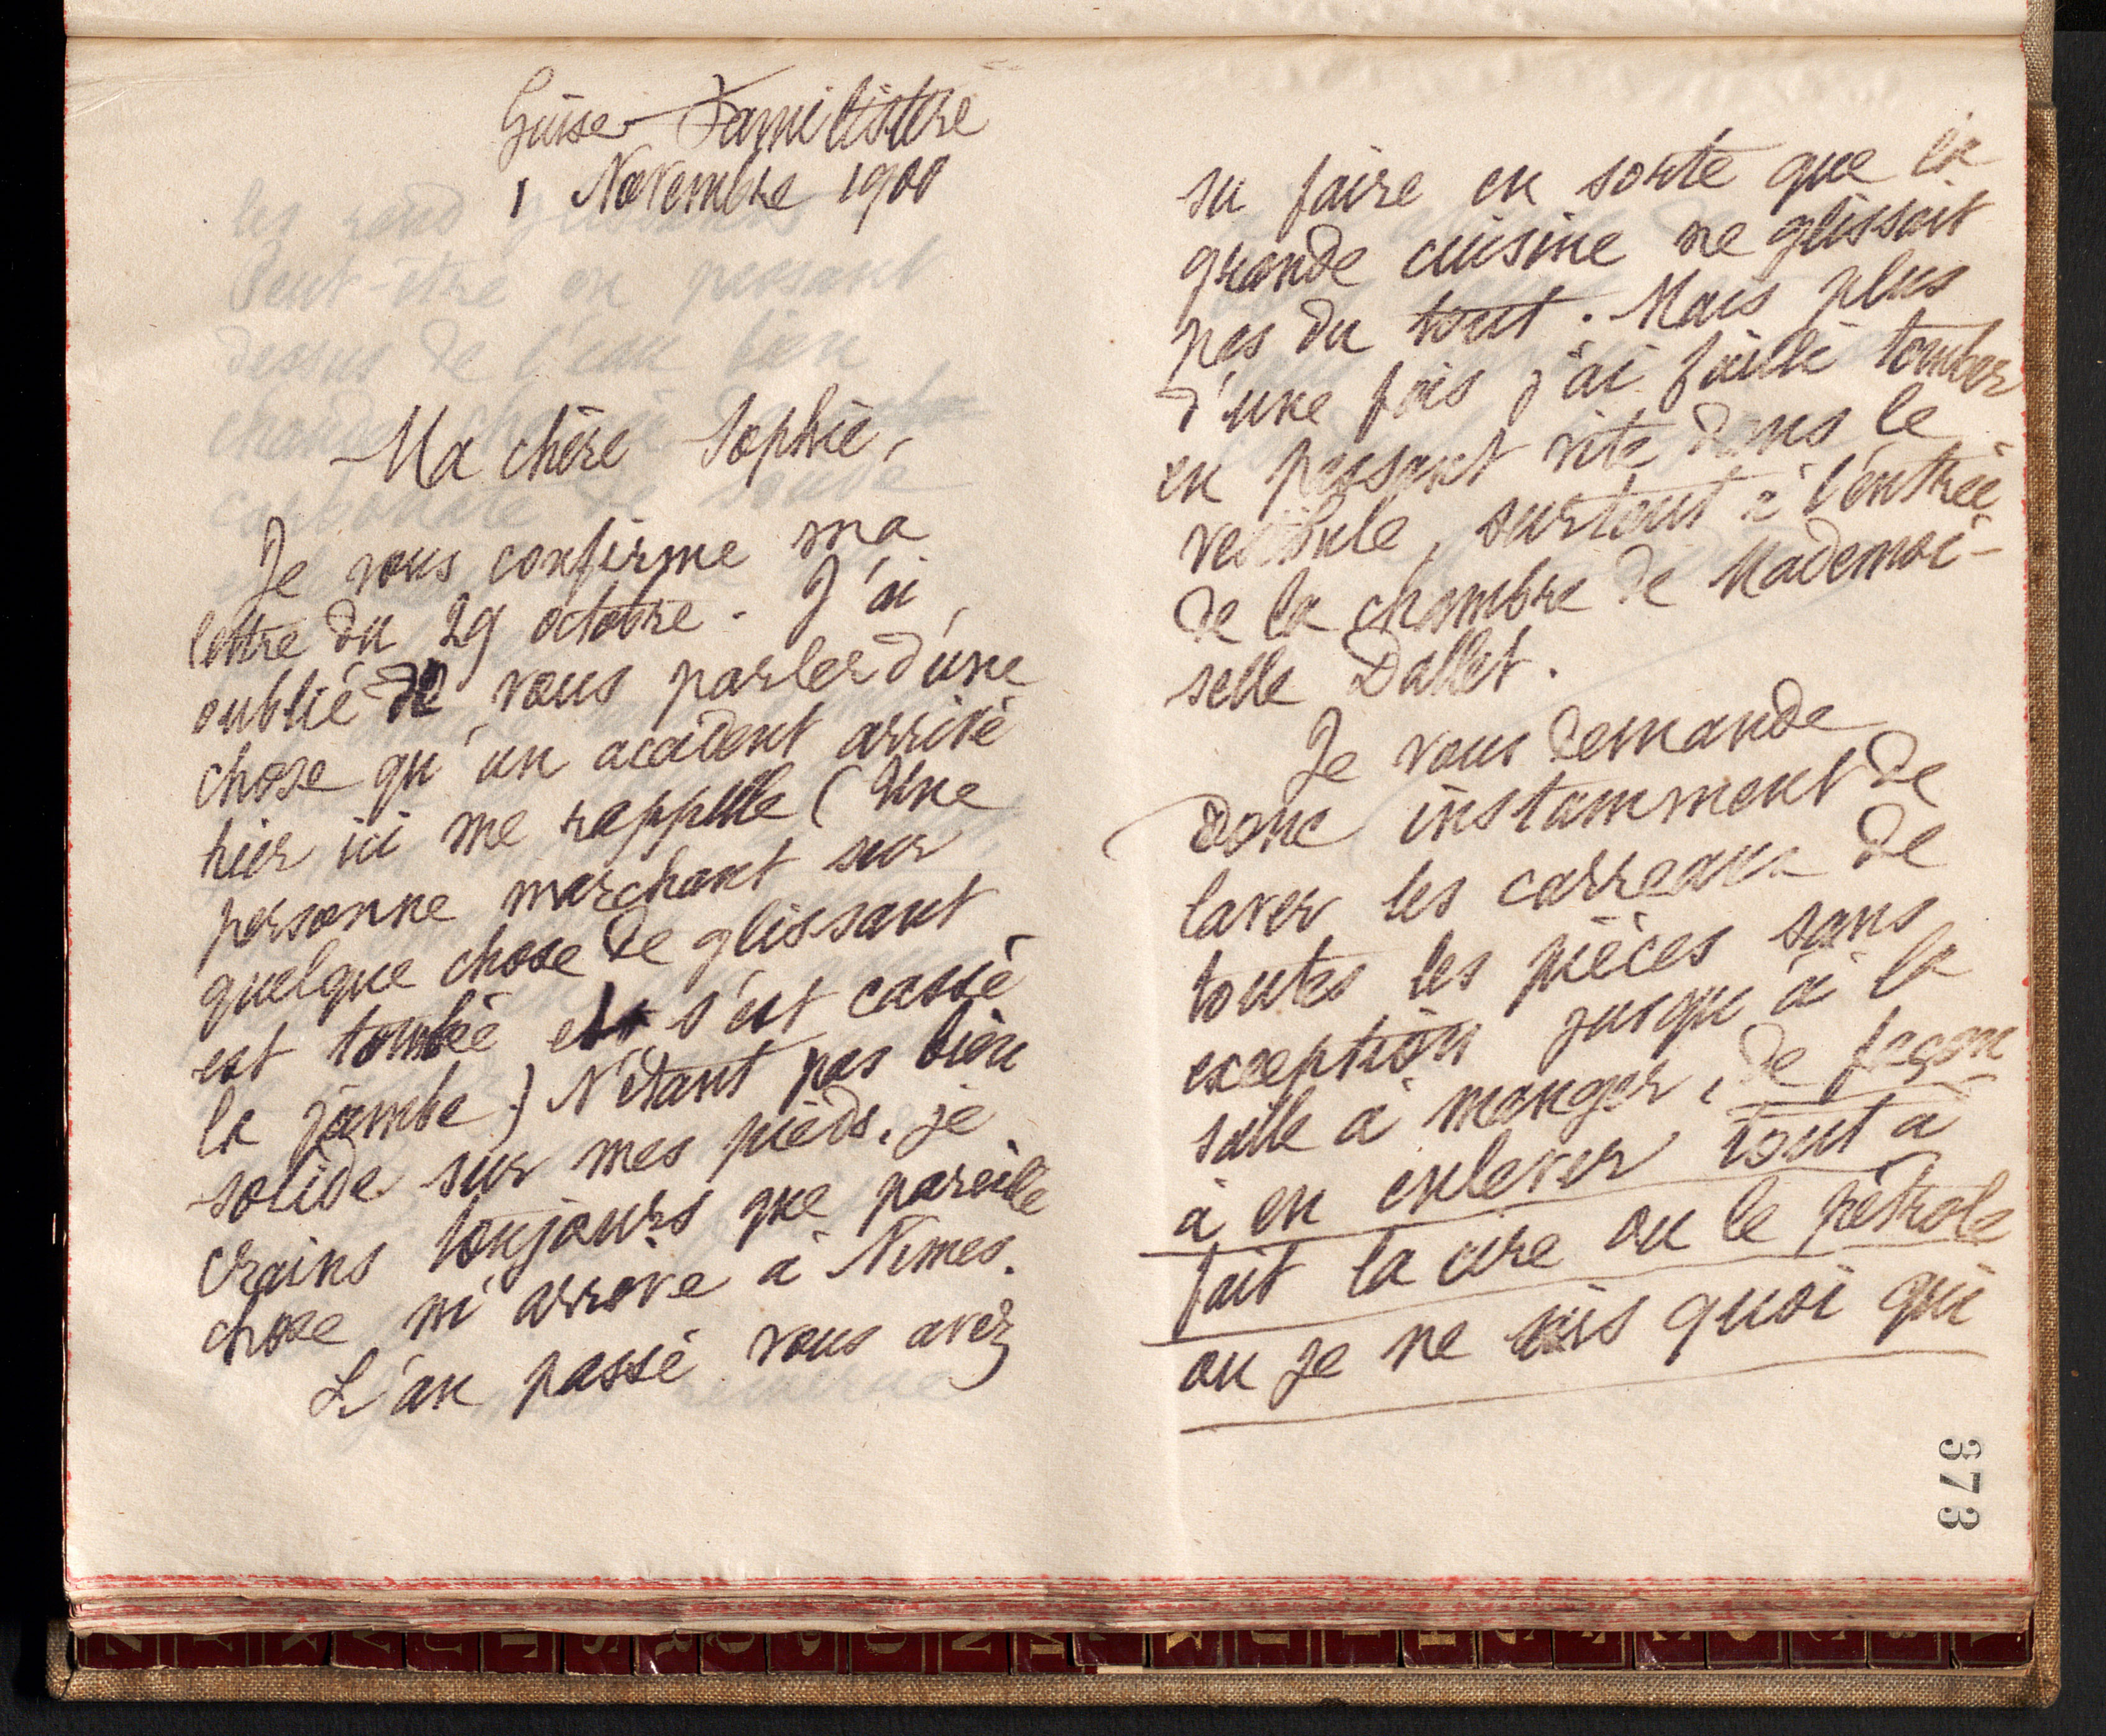 Guise - Familistère
1 Novembre 1900
Ma chère Sophie,
Je vous confirme ma
lettre du 29 octobre. J'ai
oublié de vous parler d'une
chose qu'un accident arrivé
hier ici me rappelle (Une
personne marchant sur
quelque chose de glissant
est tombée et s'est cassé
la jambe) N'étant pas bien
solide sur mes pieds, je
crains toujours que pareille
chose m'arrive à Nîmes.
L'an passé vous avez
su faire en sorte que la
grande cuisine ne glissait
pas du tout. Mais plus
d'une fois j'ai failli tomber
en passant vite dans le
vestibule, surtout à l'entrée
de la chambre de Mademoi-
selle Dallet.
Je vous demande
donc instamment de
laver les carreaux de
toutes les pièces sans
exception jusqu'à la
salle à manger, de façon
à en enlever tout à
fait la cire ou le pétrole
ou je ne sais quoi qui
373
les rend glissants
Peut-être en passant
dessus de l'eau bien
chaude
carbonate de soude
Z Y X V U T S R Q P O N M L K J I H G F E D C B A